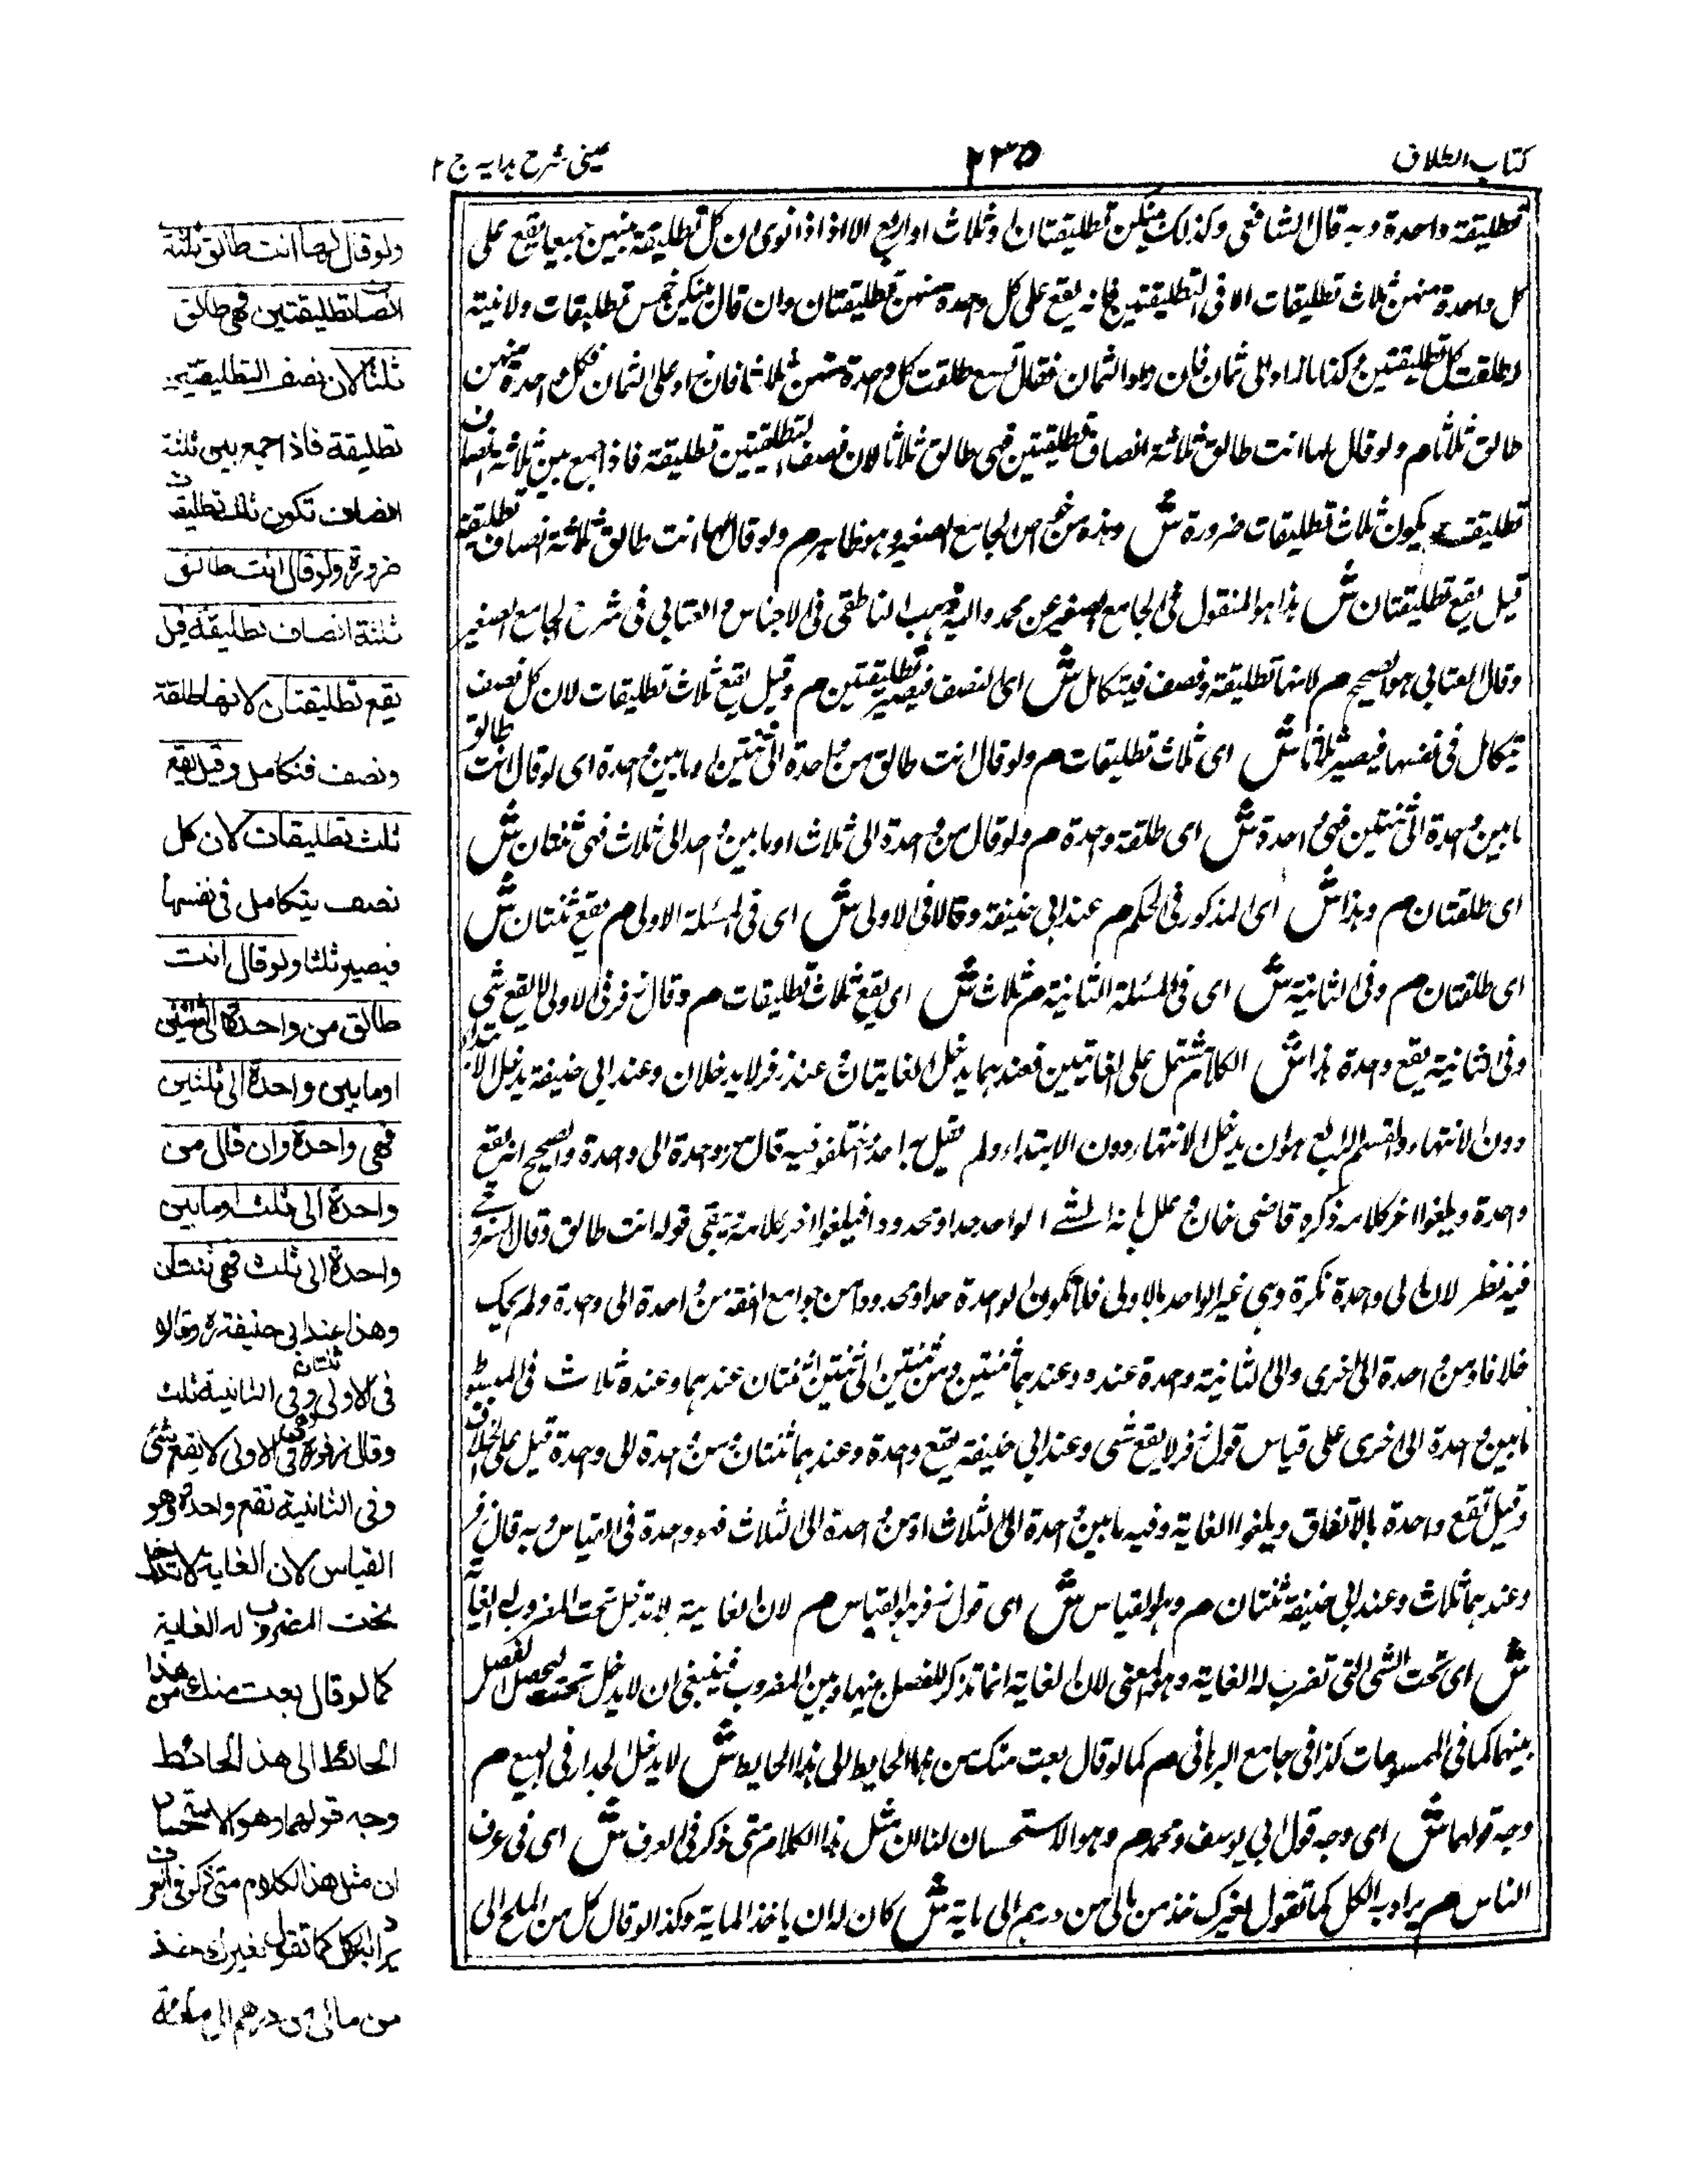 كتاب الطلاق
٢٣٥
عينى شرح هدايه ج ٢
تطليقة واحدة وبه قال الشافعى وكذلك بينكن تطليقتان او ثلاث او اربع الا اذا نوى ان كل تطليقة بينهن جميعا يقع على
كل واحدة منهن ثلاث تطليقات الا فى التطليقتين فانه يقع على كل واحدة منهن تطليقتان وان قال بينكن خمس تطليقات ولا نية
له طلقت كل تطليقتين وكذا ما زاد الى ثمان فان زاد الثمان فقال تسع طلقت كل واحدة منهن ثلاثا فان زاد على الثمان فكل واحدة منهن
طالق ثلاثا م ولو قال لها انت طالق ثلاثة انصاف تطليقتين فهى طالق ثلاثا لان نصف التطليقتين تطليقة فاذا جمع بين ثلاثة انصاف
تطليقتين يكون ثلاث تطليقات ضرورة ش وهذه من خواص الجامع الصغير وهو ظاهر م ولو قال لها انت طالق ثلاثة انصاف تطليقة
قيل يقع تطليقتان ش هذا هو المنقول فى الجامع الصغير عن محمد واليه ذهب الناطقى فى الاجناس والعتابى فى شرح الجامع الصغير
وقال العتابى هو الصحيح م لانها تطليقة ونصف فيتكامل ش اى النصف فيصير تطليقتين م وقيل يقع ثلاث تطليقات لان كل نصف
يتكامل فى نفسها فيصير ثلاثا ش اى ثلاث تطليقات م ولو قال انت طالق من واحدة الى ثنتين او ما بين واحدة اى لو قال انت طالق
ما بين واحدة الى ثنتين فهى واحدة ش اى طلقة واحدة م ولو قال من واحدة الى ثلاث او ما بين واحد الى ثلاث فهى ثنتان ش
اى طلقتان م وهذا ش اى المذكور فى الحكم م عند ابى حنيفة وقالا فى الاولى ش اى فى المسئلة الاولى م يقع ثنتان ش
اى طلقتان م وفى الثانية ش اى فى المسئلة الثانية م ثلاث ش اى يقع ثلاث تطليقات م وقال زفر فى الاولى لا يقع شئ
وفى الثانية يقع واحدة هذا ش الكلام مشتمل على الغايتين فعندهما يدخل الغايتان وعند زفر لا يدخلان وعند ابى حنيفة يدخل الابتداء
دون الانتهاء والقسم الرابع هو ان يدخل الانتهاء دون الابتداء ولم يقل به احد واختلفوا فيه قال من واحدة الى واحدة والصحيح انه يقع
واحدة ويلغوا اخر كلامه ذكره قاضى خان وعلل بانه الشئ الواحد حدا ومحدودا فيلغوا اخر كلامه يبقى قوله انت طالق وقال السروجى
فيه نظر لان الى واحدة نكرة وهى غير الواحد بالاولى فلا تكون الواحدة حدا ومحدودا من جوامع الفقه من واحدة الى واحدة ولم يحك
خلافا ومن واحدة الى اخرى والى الثانية واحدة عنده وعندهما ثنتين ومن ثنتين الى ثنتين ثنتان عندهما وعنده ثلاث فى المبسوط
ما بين واحدة الى اخرى على قياس قول زفر لا يقع شئ وعند ابى حنيفة يقع واحدة وعندهما ثنتان من واحدة الى واحدة قيل على الخلاف
وقيل تقع واحدة بالاتفاق ويلغوا الغاية وفيه ما بين واحدة الى الثلاث او من واحدة الى الثلاث فهو واحدة فى القياس وبه قال زفر
وعندهما ثلاث وعند ابى حنيفة ثنتان م وهو القياس ش اى قول زفر هو القياس م لان الغاية لا تدخل تحت المضروب له الغاية
ش اى تحت الشئ التى تضرب له الغاية وهو المغيى لان الغاية انما تذكر للفصل بينها وبين المضروب فينبغى ان لا يدخل تحته ليحصل الفصل
بينهما كما فى الممسوحات كذا فى جامع البرهانى م كما لو قال بعت منك من هذا الحايط الى هذا الحايط ش لا يدخل الجدار فى البيع م
وجه قولهما ش اى وجه قول ابى يوسف ومحمد م وهو الاستحسان لنا ان مثل هذا الكلام متى ذكر فى العرف ش اى فى عرف
الناس م يراد به الكل كما تقول لغيرك خذ من مالى من درهم الى ماية ش كان له ان ياخذ الماية وكذا لو قال كل من الملح الى
ولو قال لها انت طالق ثلثة
انصاف تطليقتين فهى طالق
ثلثا لان نصف التطليقتين
تطليقة فاذا جمع بين ثلثة
انصاف تكون ثلث تطليقات
ضرورة ولو قال انت طالق
ثلثة انصاف تطليقة قيل
يقع تطليقتان لانها طلقة
ونصف فتكامل وقيل يقع
ثلث تطليقات لان كل
نصف يتكامل فى نفسها
فيصير ثلثا ولو قال انت
طالق من واحدة الى ثنتين
او ما بين واحدة الى ثنتين
فهى واحدة وان قال من
واحدة الى ثلث او ما بين
واحدة الى ثلث فهى ثنتان
وهذا عند ابى حنيفة ره وقالا
فى الاولى ثنتان وفى الثانية ثلث
وقال زفر ره فى الاولى لا يقع شئ
وفى الثانية تقع واحدة وهو
القياس لان الغاية لا تدخل
تحت المضروب له الغاية
كما لو قال بعت منك من هذا
الحائط الى هذا الحائط
وجه قولهما وهو الاستحسان
ان مثل هذا الكلام متى ذكر فى العرف
يراد به الكل كما تقول لغيرك خذ
من مالى من درهم الى مائة